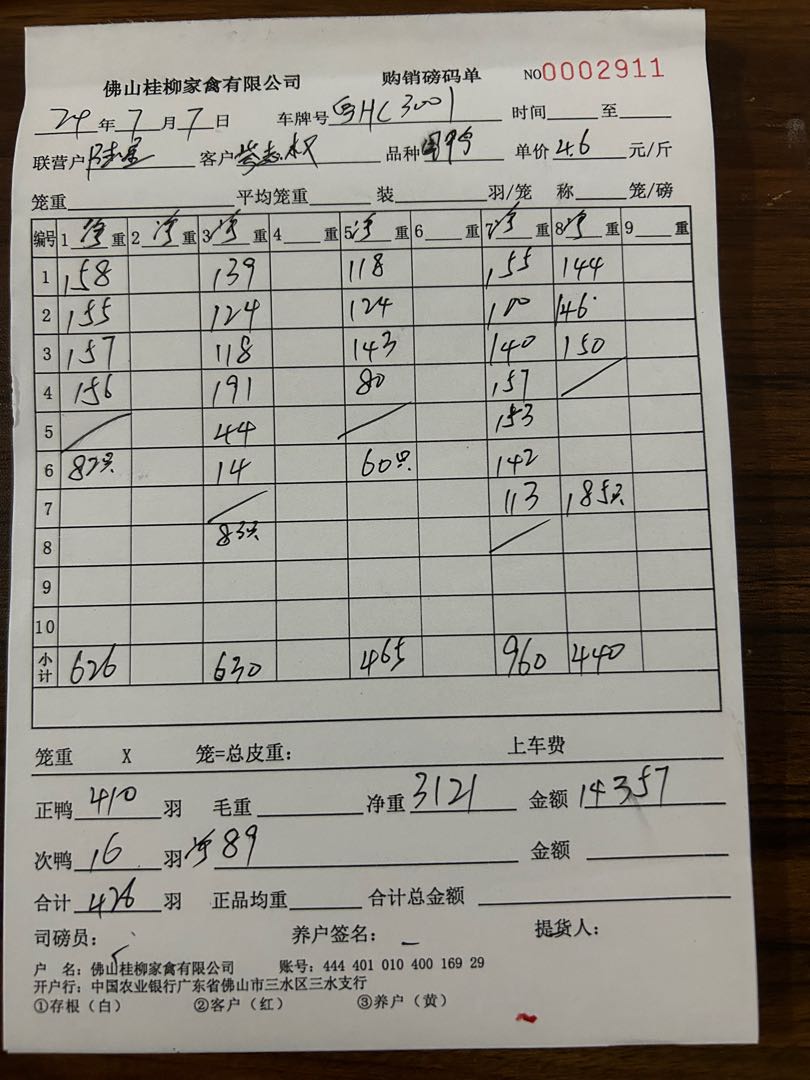 佛山桂柳家禽有限公司 购销磅码单 NO0002911
24年7月7日 车牌号 HC3001 时间 至
联营户 客户 权 品种 单价4.6元/斤
笼重 平均笼重 装 羽/笼 称 笼/磅
编号 1净重 2净重 3净重 4重 5净重 6重 7净重 8净重 9重
1 158 139 118 155 144
2 155 124 124 100 146
3 157 118 143 140 150
4 156 191 80 157
5 44 153
6 82只 14 60只 142
7 113 185只
8 83只
9
10
小计 626 630 465 960 440
笼重 X 笼=总皮重: 上车费
正鸭410羽 毛重 净重3121 金额14357
次鸭16羽 净89 金额
合计426羽 正品均重 合计总金额
司磅员: 养户签名: 提货人:
户 名: 佛山桂柳家禽有限公司 账号: 444 401 010 400 169 29
开户行: 中国农业银行广东省佛山市三水区三水支行
①存根(白) ②客户(红) ③养户(黄)